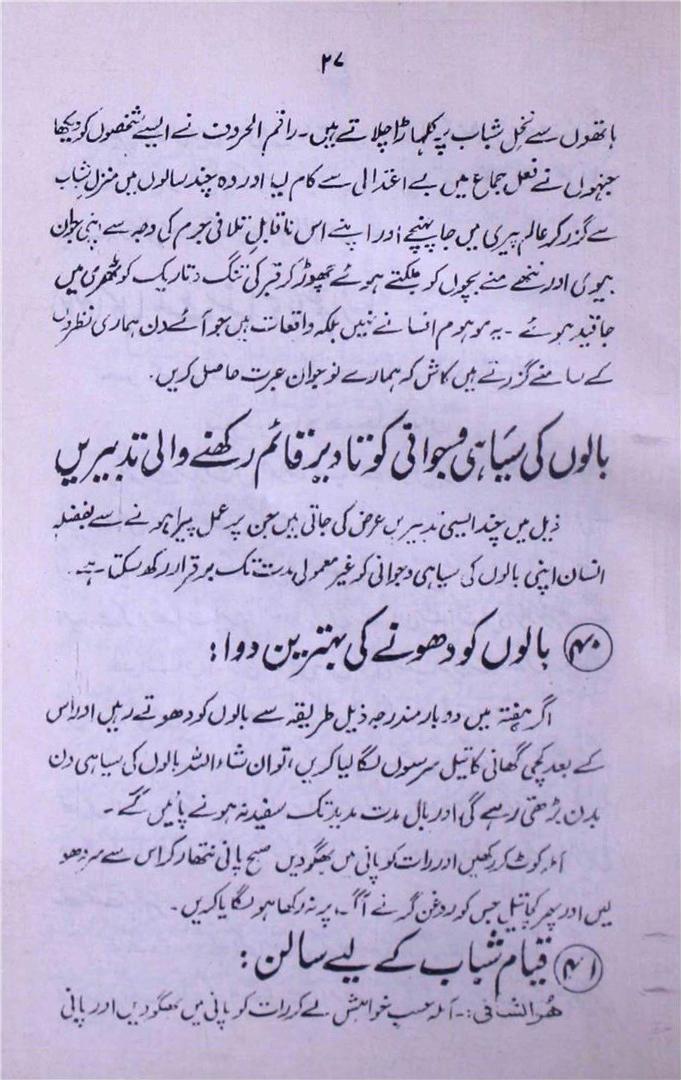 ۲۷
ہاتھوں سے نخل شباب پہ کلہاڑا چلاتے ہیں۔ راقم الحروف نے ایسے شخصوں کو دیکھا
جنہوں نے فعل جماع میں بے اعتدالی سے کام لیا اور وہ چند سالوں میں منزل شباب
سے گزر کر عالم پیری میں جا پہنچے اور اپنے اس ناقابل تلافی جرم کی وجہ سے اپنی جوان
بیوی اور ننھے منے بچوں کو بلکتے ہوئے چھوڑ کر قبر کی تنگ و تاریک کوٹھری میں
جا قید ہوئے ۔ یہ موہوم افسانے نہیں بلکہ واقعات ہیں جو آئے دن ہماری نظروں
کے سامنے گزرتے ہیں کاش کہ ہمارے نوجوان عبرت حاصل کریں۔
بالوں کی سیاہی و جوانی کو تا دیر قائم رکھنے والی تدبیریں
ذیل میں چند ایسی تدبیریں عرض کی جاتی ہیں جن پر عمل پیرا ہونے سے بفضلہ
انسان اپنی بالوں کی سیاہی و جوانی کو غیر معمولی مدت تک برقرار رکھ سکتا ہے۔
۴۰ بالوں کو دھونے کی بہترین دوا:
اگر ہفتہ میں دو بار مندرجہ ذیل طریقہ سے بالوں کو دھوتے رہیں اور اس
کے بعد کچی گھانی کا تیل سرسوں لگا لیا کریں، تو ان شاء اللہ بالوں کی سیاہی دن
بدن بڑھتی رہے گی اور بال مدت مدید تک سفید نہ ہونے پائیں گے ۔
آملہ کوٹ کر رکھیں اور رات کو پانی میں بھگو دیں صبح پانی نتھار کر اس سے سر دھو
لیں اور پھر کچا تیل جس کو روغن گر نے آگ پر نہ رکھا ہو لگایا کریں۔
۴۱ قیام شباب کے لیے سالن:
ھو الشافی:۔ آملہ حسب خواہش لے کر رات کو پانی میں بھگو دیں اور پانی